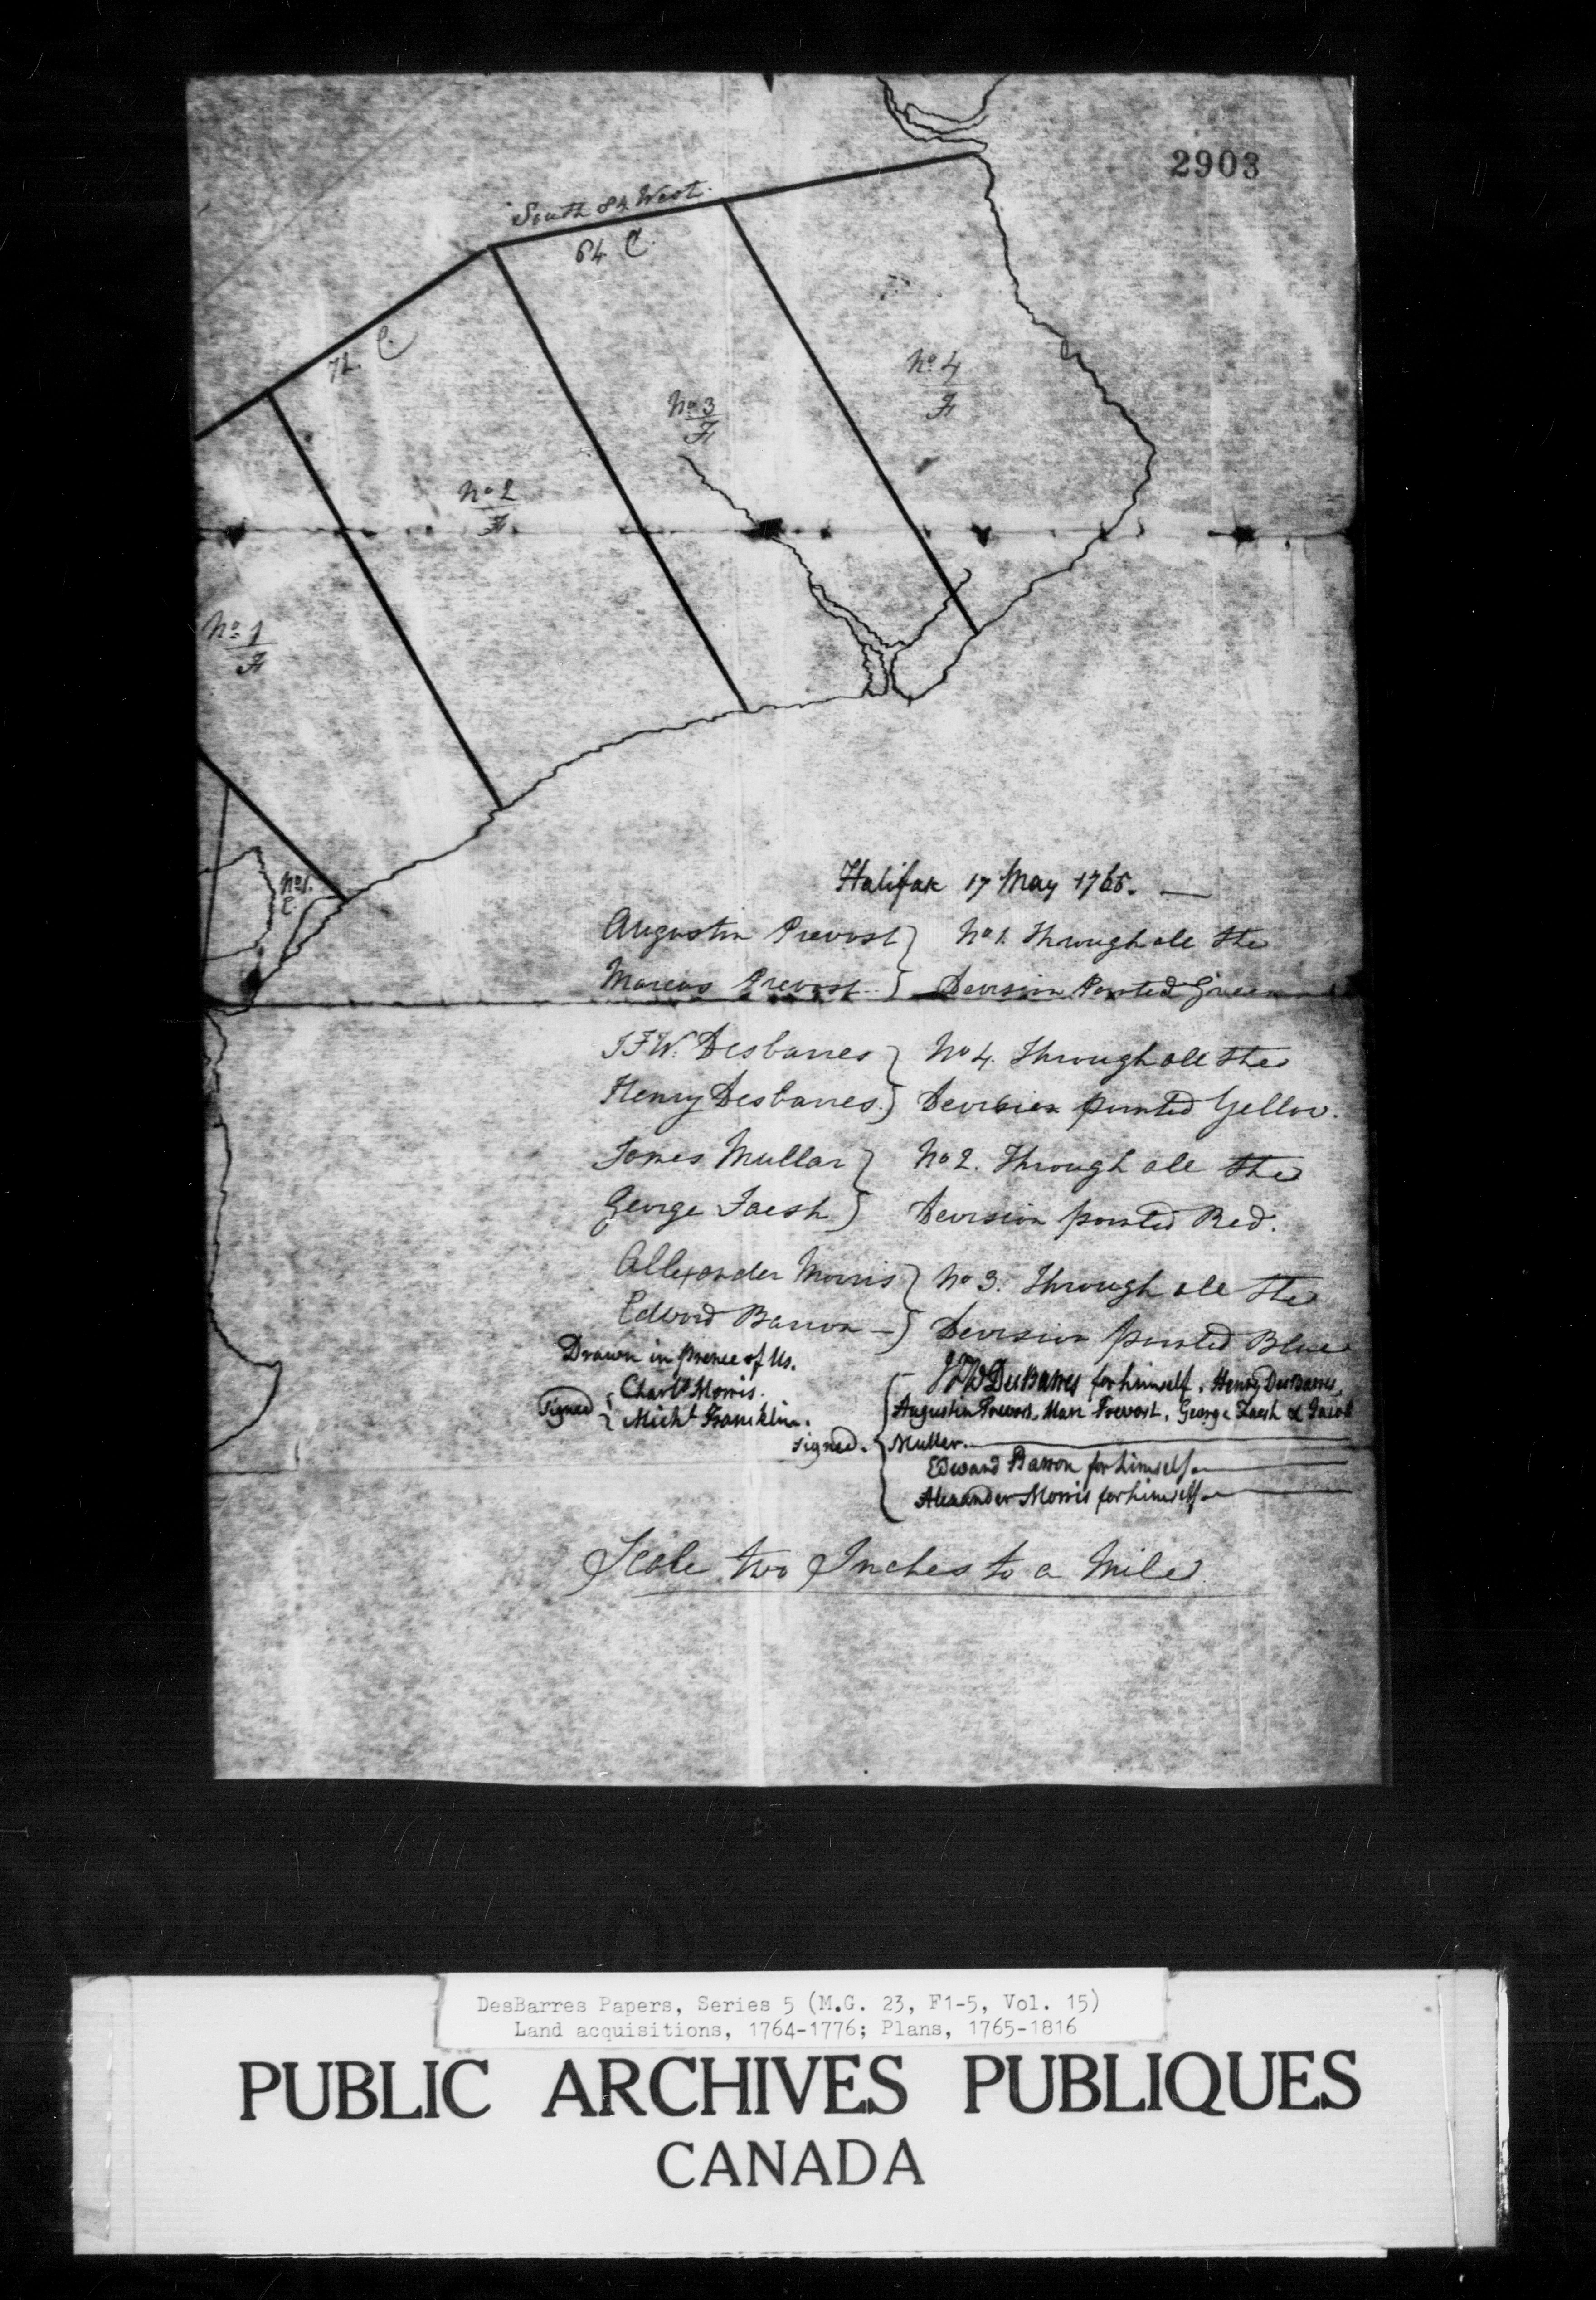 2903
South 84 West
64 C.
72. C.
No 4
F
No 3
F
No 2
F
No 1
F
No 1.
C
Halifax 17 May 1765.
Augustin Prevost } No 1. Through all the
Marcus Prevost } Devision Pointed Green
J F W. Desbarres } No 4. Through all the
Henry Desbarres } Devision pointed Yellow.
James Mullar } No 2. Through all the
George Faesh } Devision pointed Red.
Allexander Morris } No 3. Through all the
Edward Barron } Devision pointed Blue
Drawn in prence of Us.
Signed { Charls Morris.
Michl Francklin.
signed. { JFW DesBarres for himself, Henry DesBarres,
Augustin Prevost, Marc Prevost, George Faesh & Jacob
Muller.
Edward Barron for himself
Alexander Morris for himself
Scale two Inches to a Mile
DesBarres Papers, Series 5 (M.G. 23, F1-5, Vol. 15)
Land acquisitions, 1764-1776; Plans, 1765-1816
PUBLIC ARCHIVES PUBLIQUES
CANADA